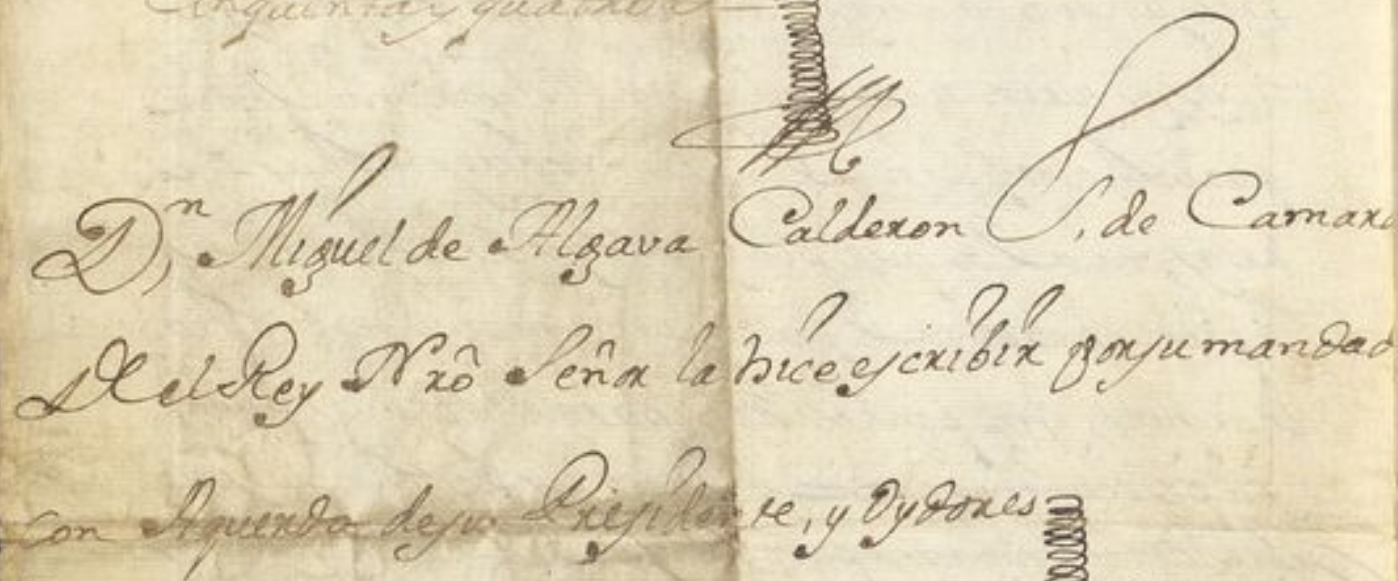 cinquenta y quatro
Dn, Miguel de Algava Calderon S, de Camara
Del Rey Nrô Señor la hice escribir por su mandado
con Aquerdo de su Presidente, y Oydores